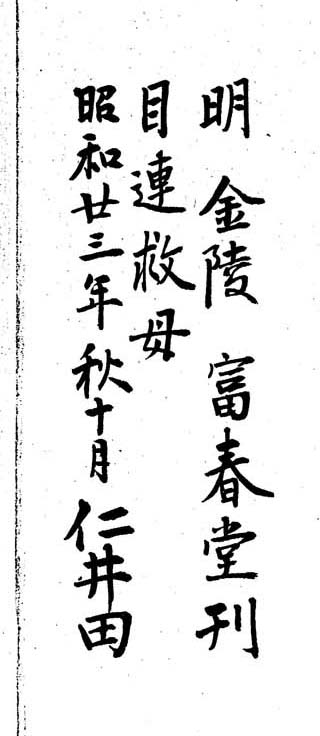 明 金陵 富春堂刊
目連救母
昭和廿三年秋十月 仁井田